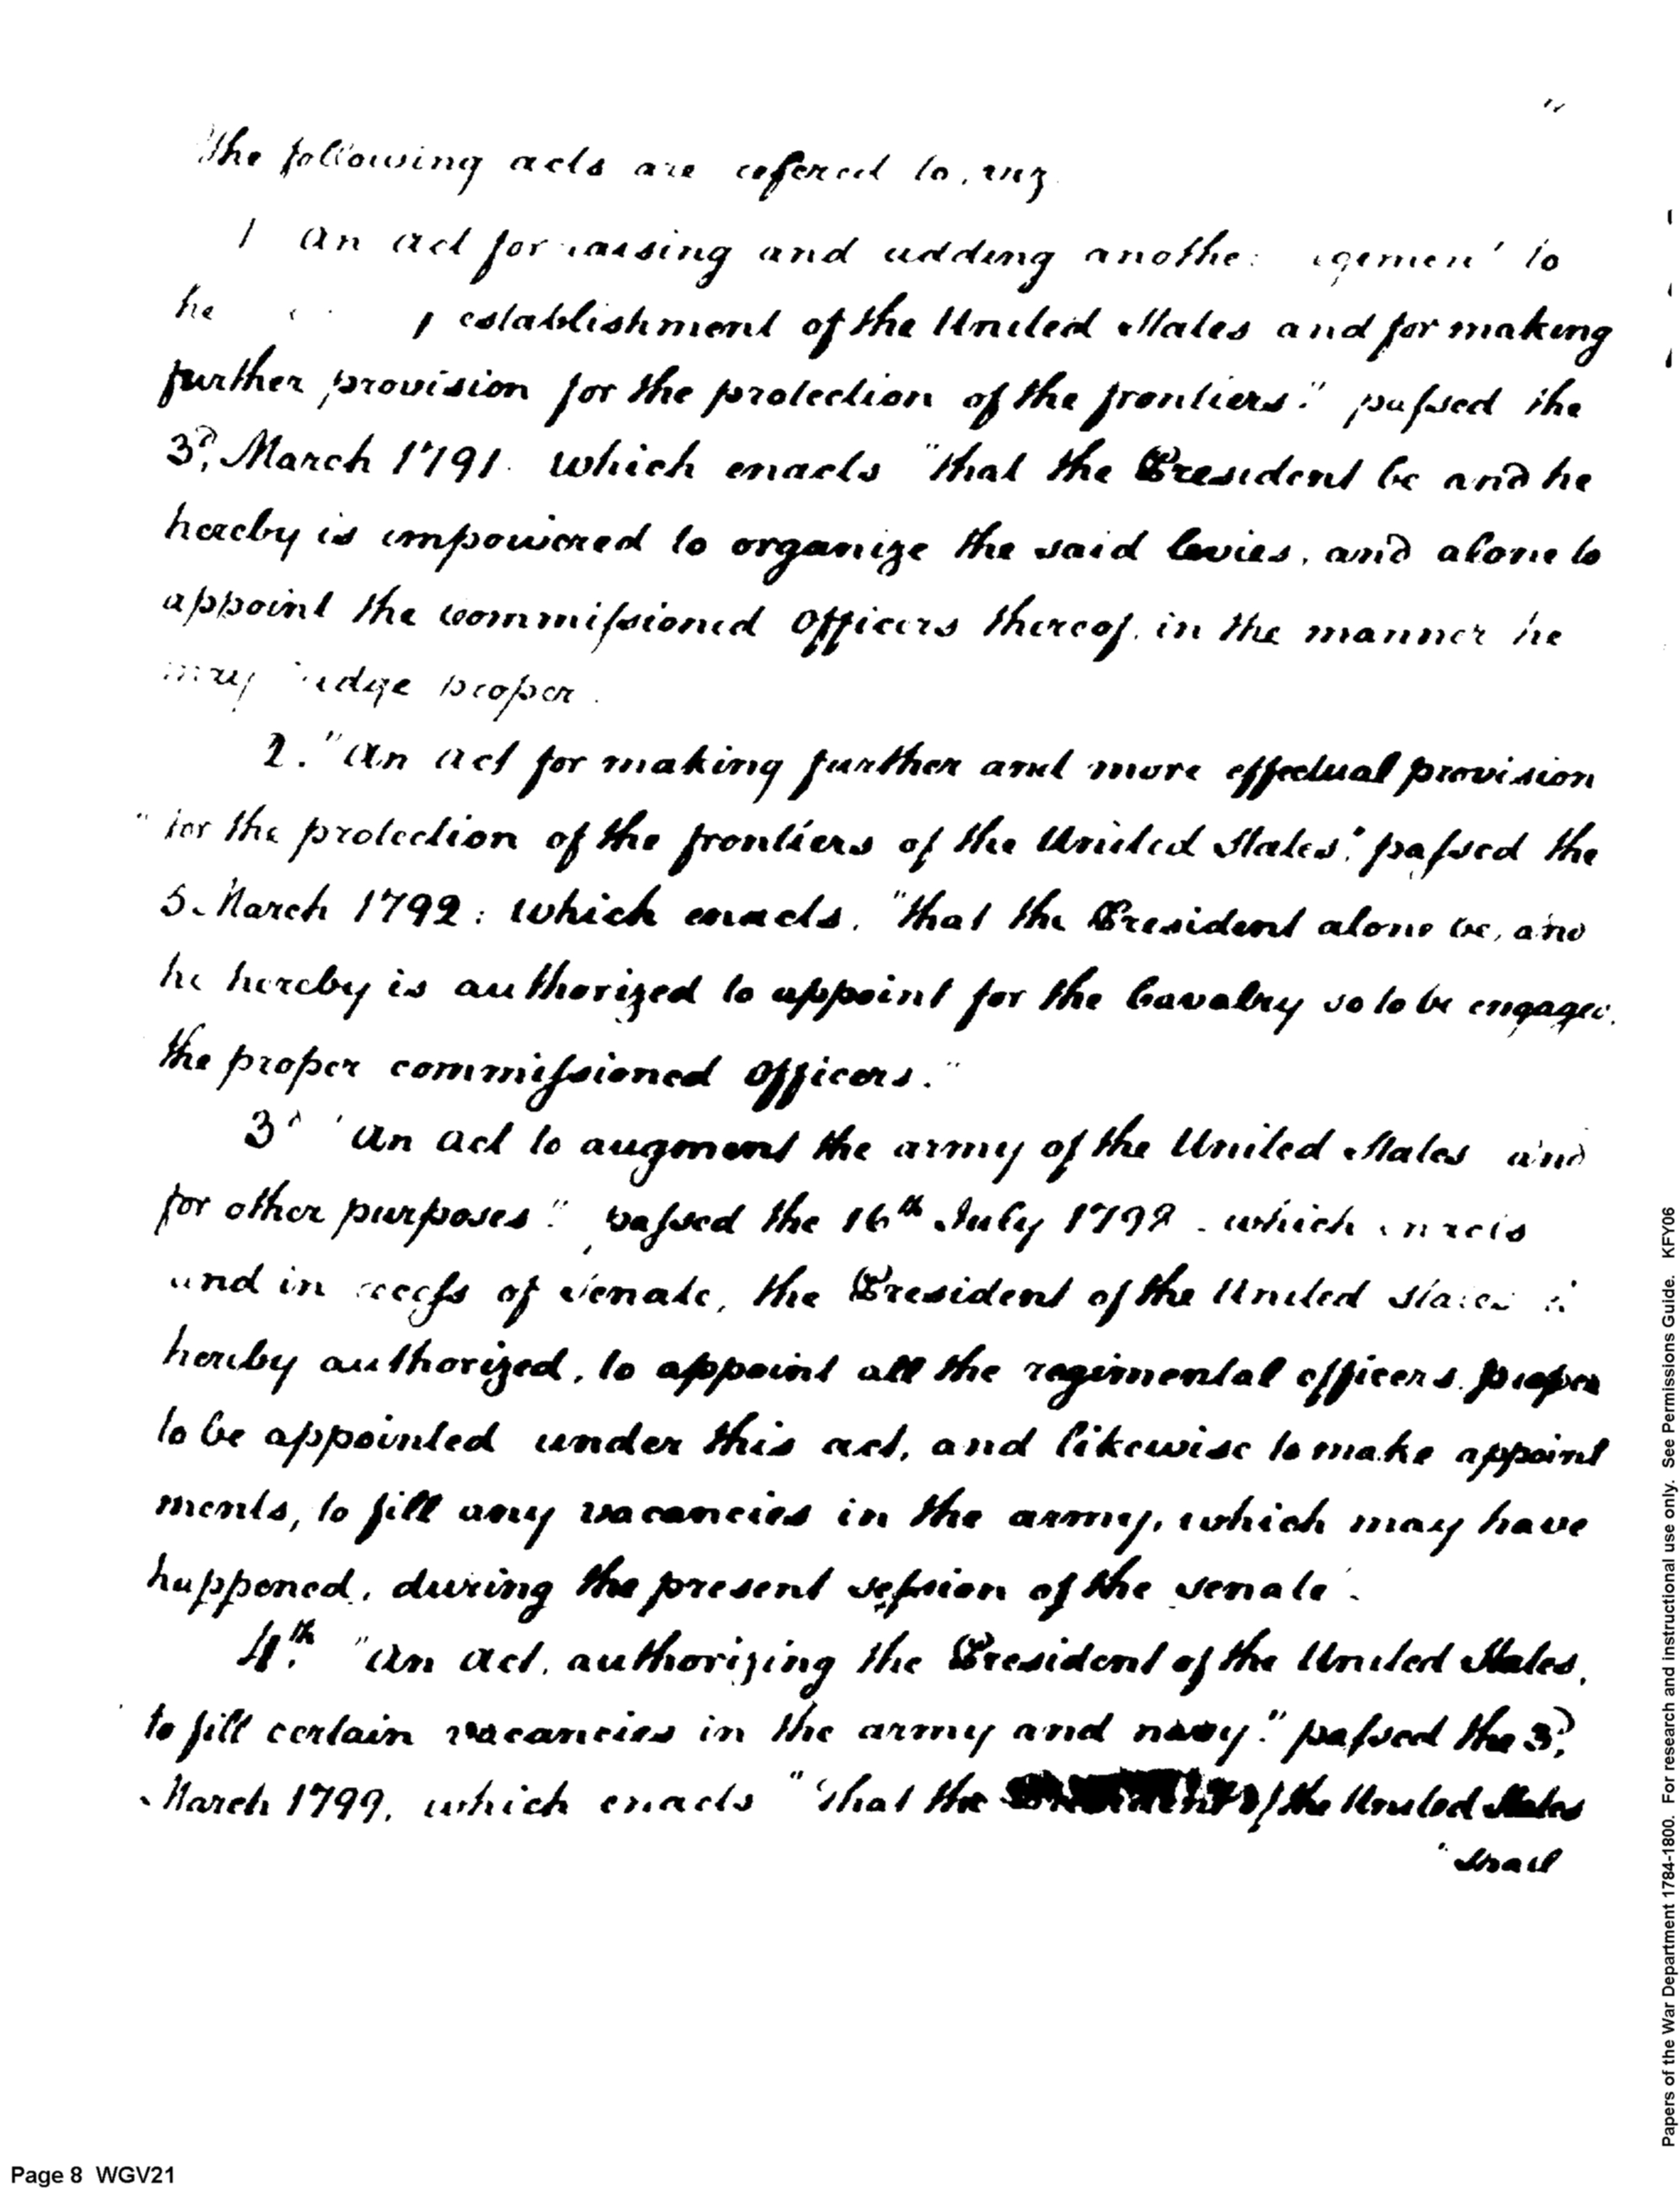 The following acts are refered to, viz
1 An act for raising and adding another regiment to
the establishment of the United States and for making
further provision for the protection of the frontiers." passed the
3d, March 1791. which enacts "that the President be and he
hereby is impowered to organize the said levies, and alone to
appoint the commissioned Officers thereof. in the manner he
may judge proper.
2. "An act for making further and more effectual provision
"for the protection of the frontiers of the United States." passed the
5. March 1792: which enacts, "that the President alone be, and
he hereby is authorized to appoint for the Cavalry so to be engaged.
the proper commissioned Officers."
3d "An act to augment the army of the United States and
for other purposes." passed the 16th July 1798. which enacts
and in recess of Senate, the President of the United States is
hereby authorized, to appoint all the regimental officers. proper
to be appointed under this act, and likewise to make appoint
ments, to fill any vacancies in the army, which may have
happened, during the present session of the senate.
4th. "An act, authorizing the President of the United States,
to fill certain vacancies in the army and navy." passed the 3d,
March 1799, which enacts "that the President of the United States
"shall
Page 8 WGV21
Papers of the War Department 1784-1800. For research and instructional use only. See Permissions Guide. KFY06